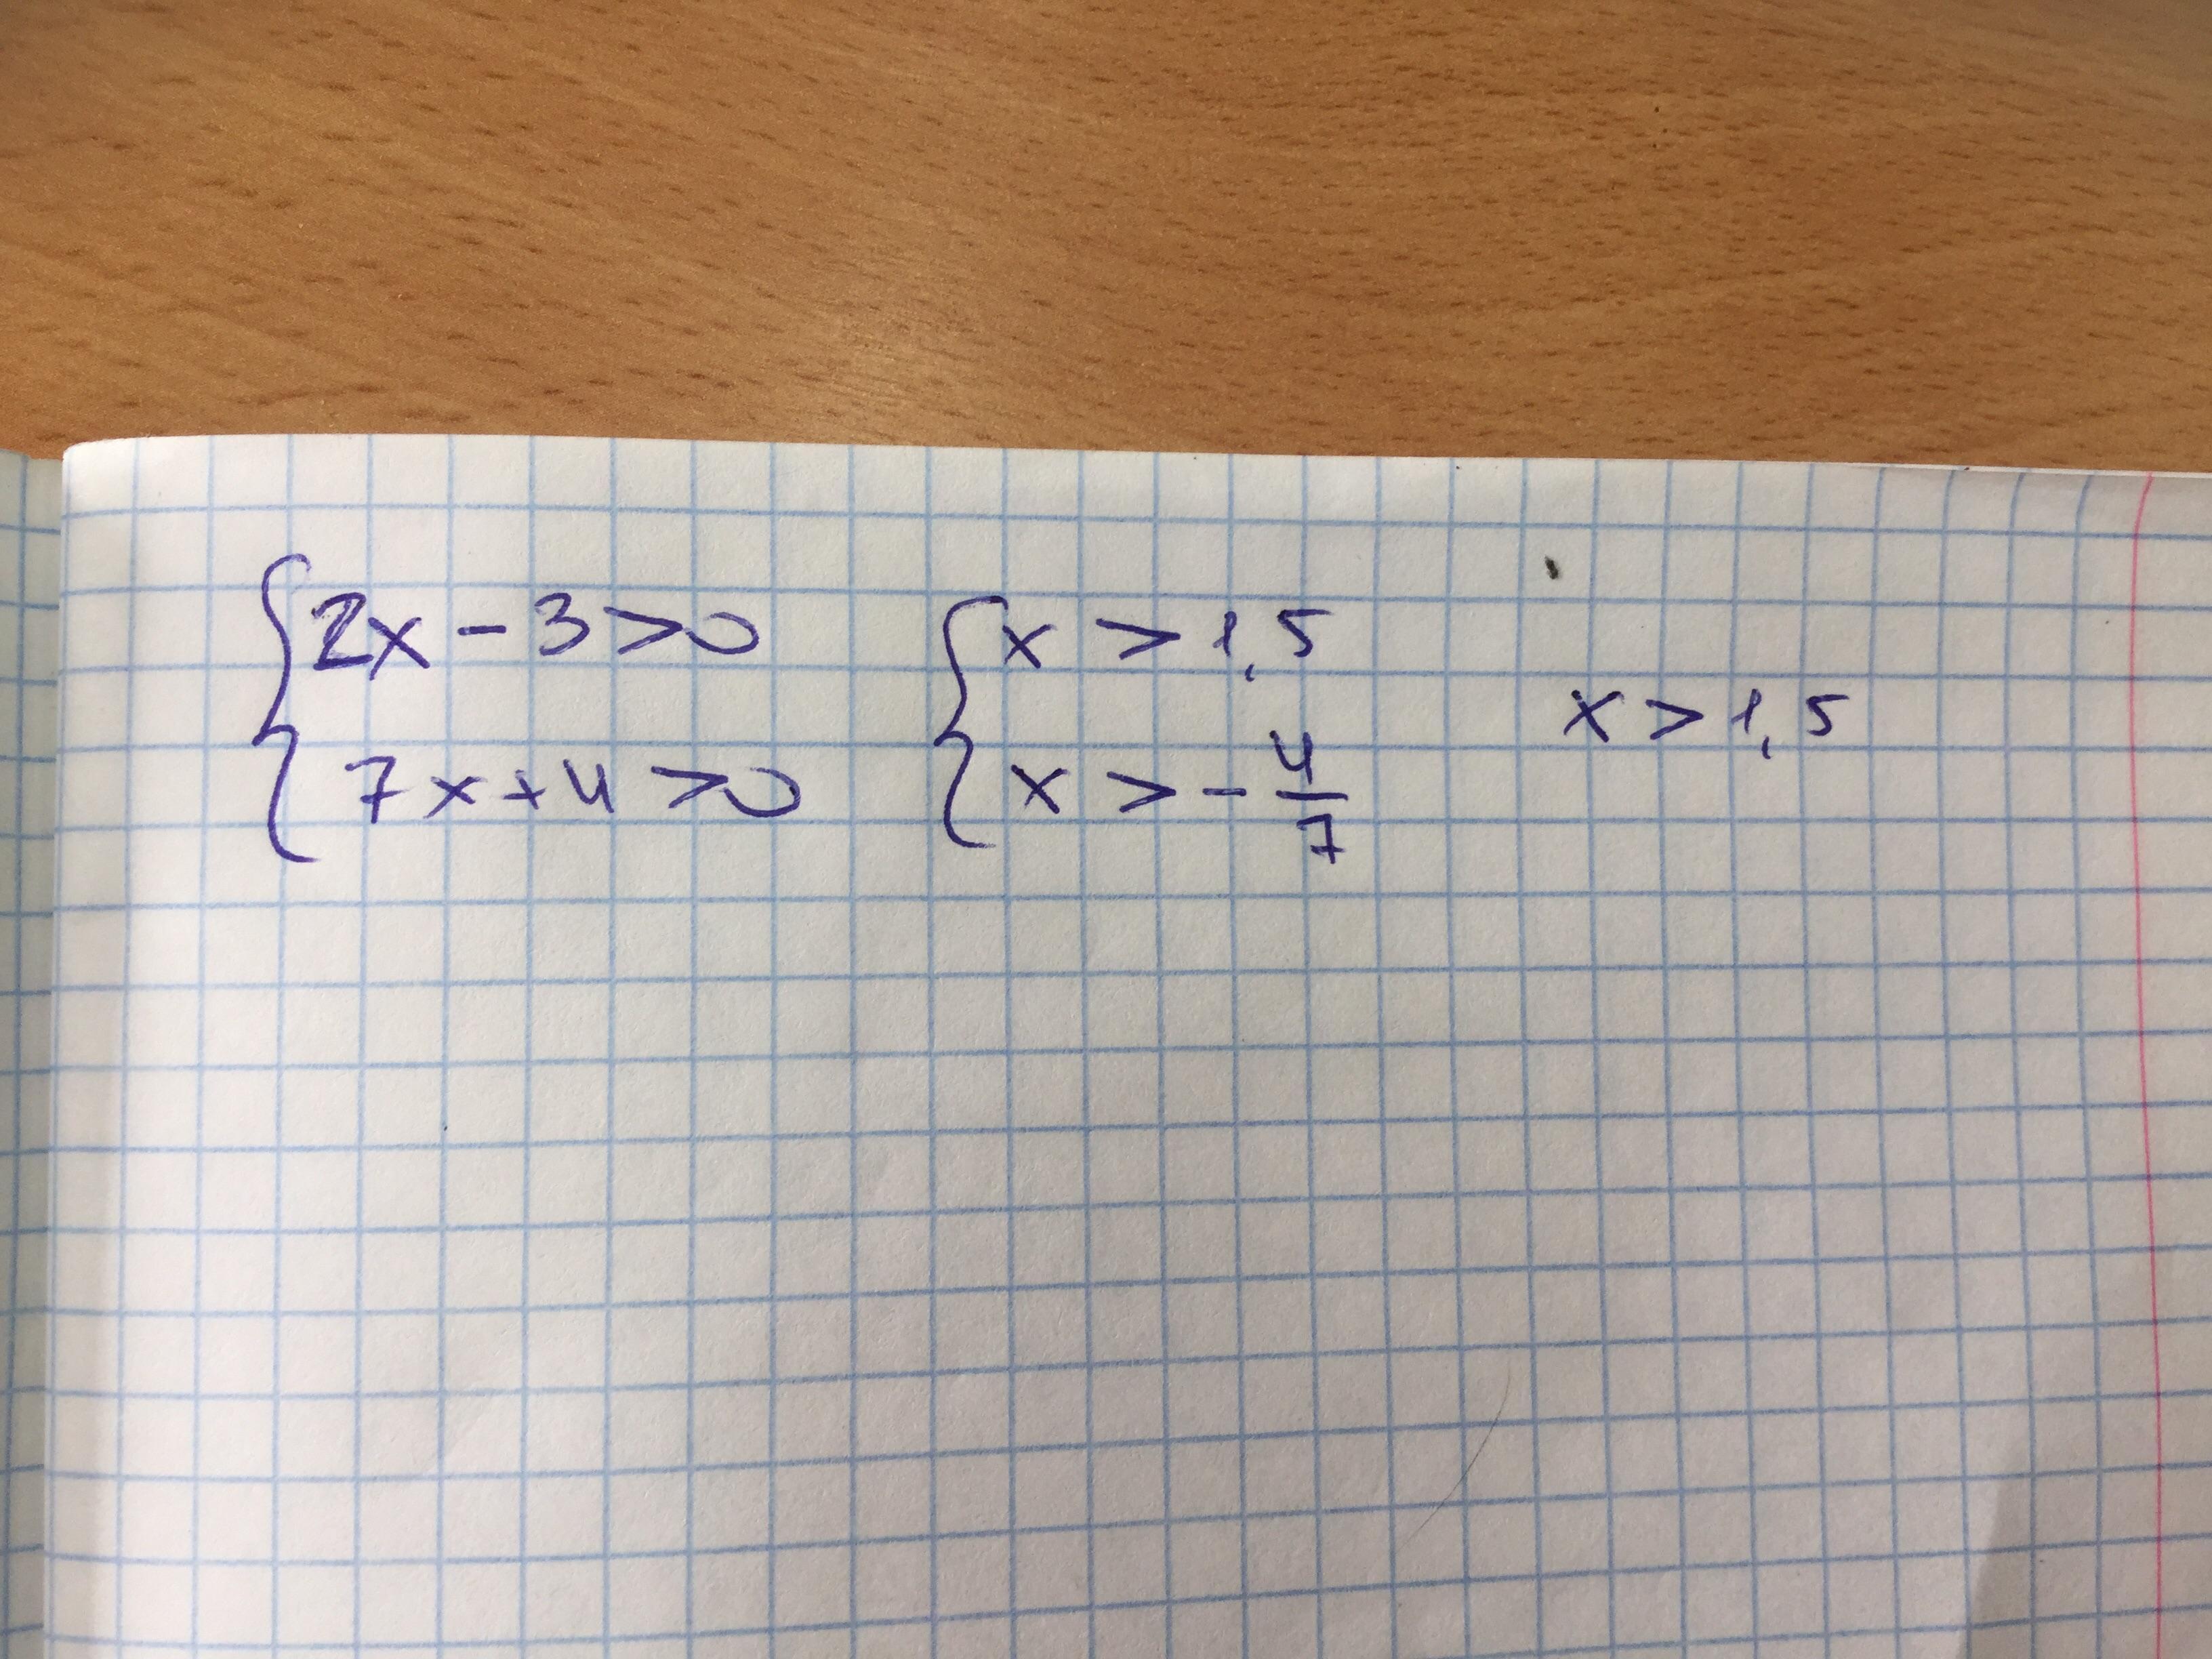 {2x - 3 > 0
7x + 4 > 0
{x > 1,5
x > - 4/7
x > 1,5